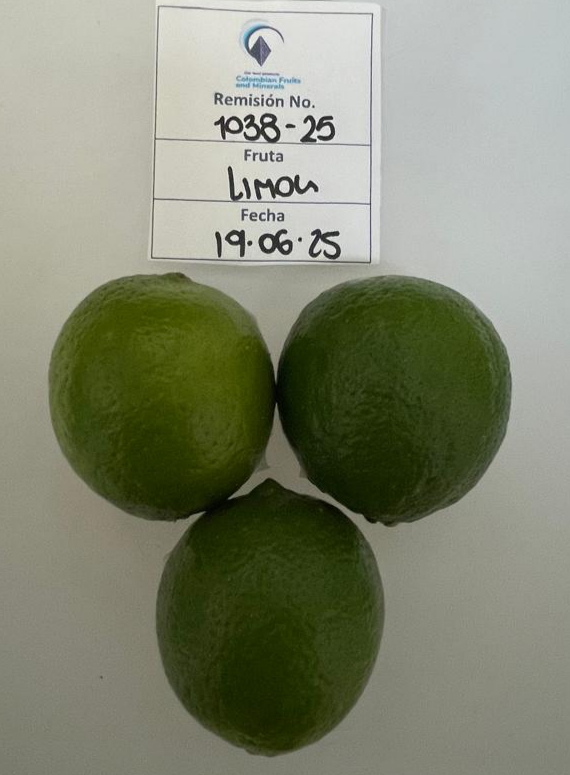 Colombian Fruits
and Minerals
Remisión No.
1038-25
Fruta
Limon
Fecha
19.06.25